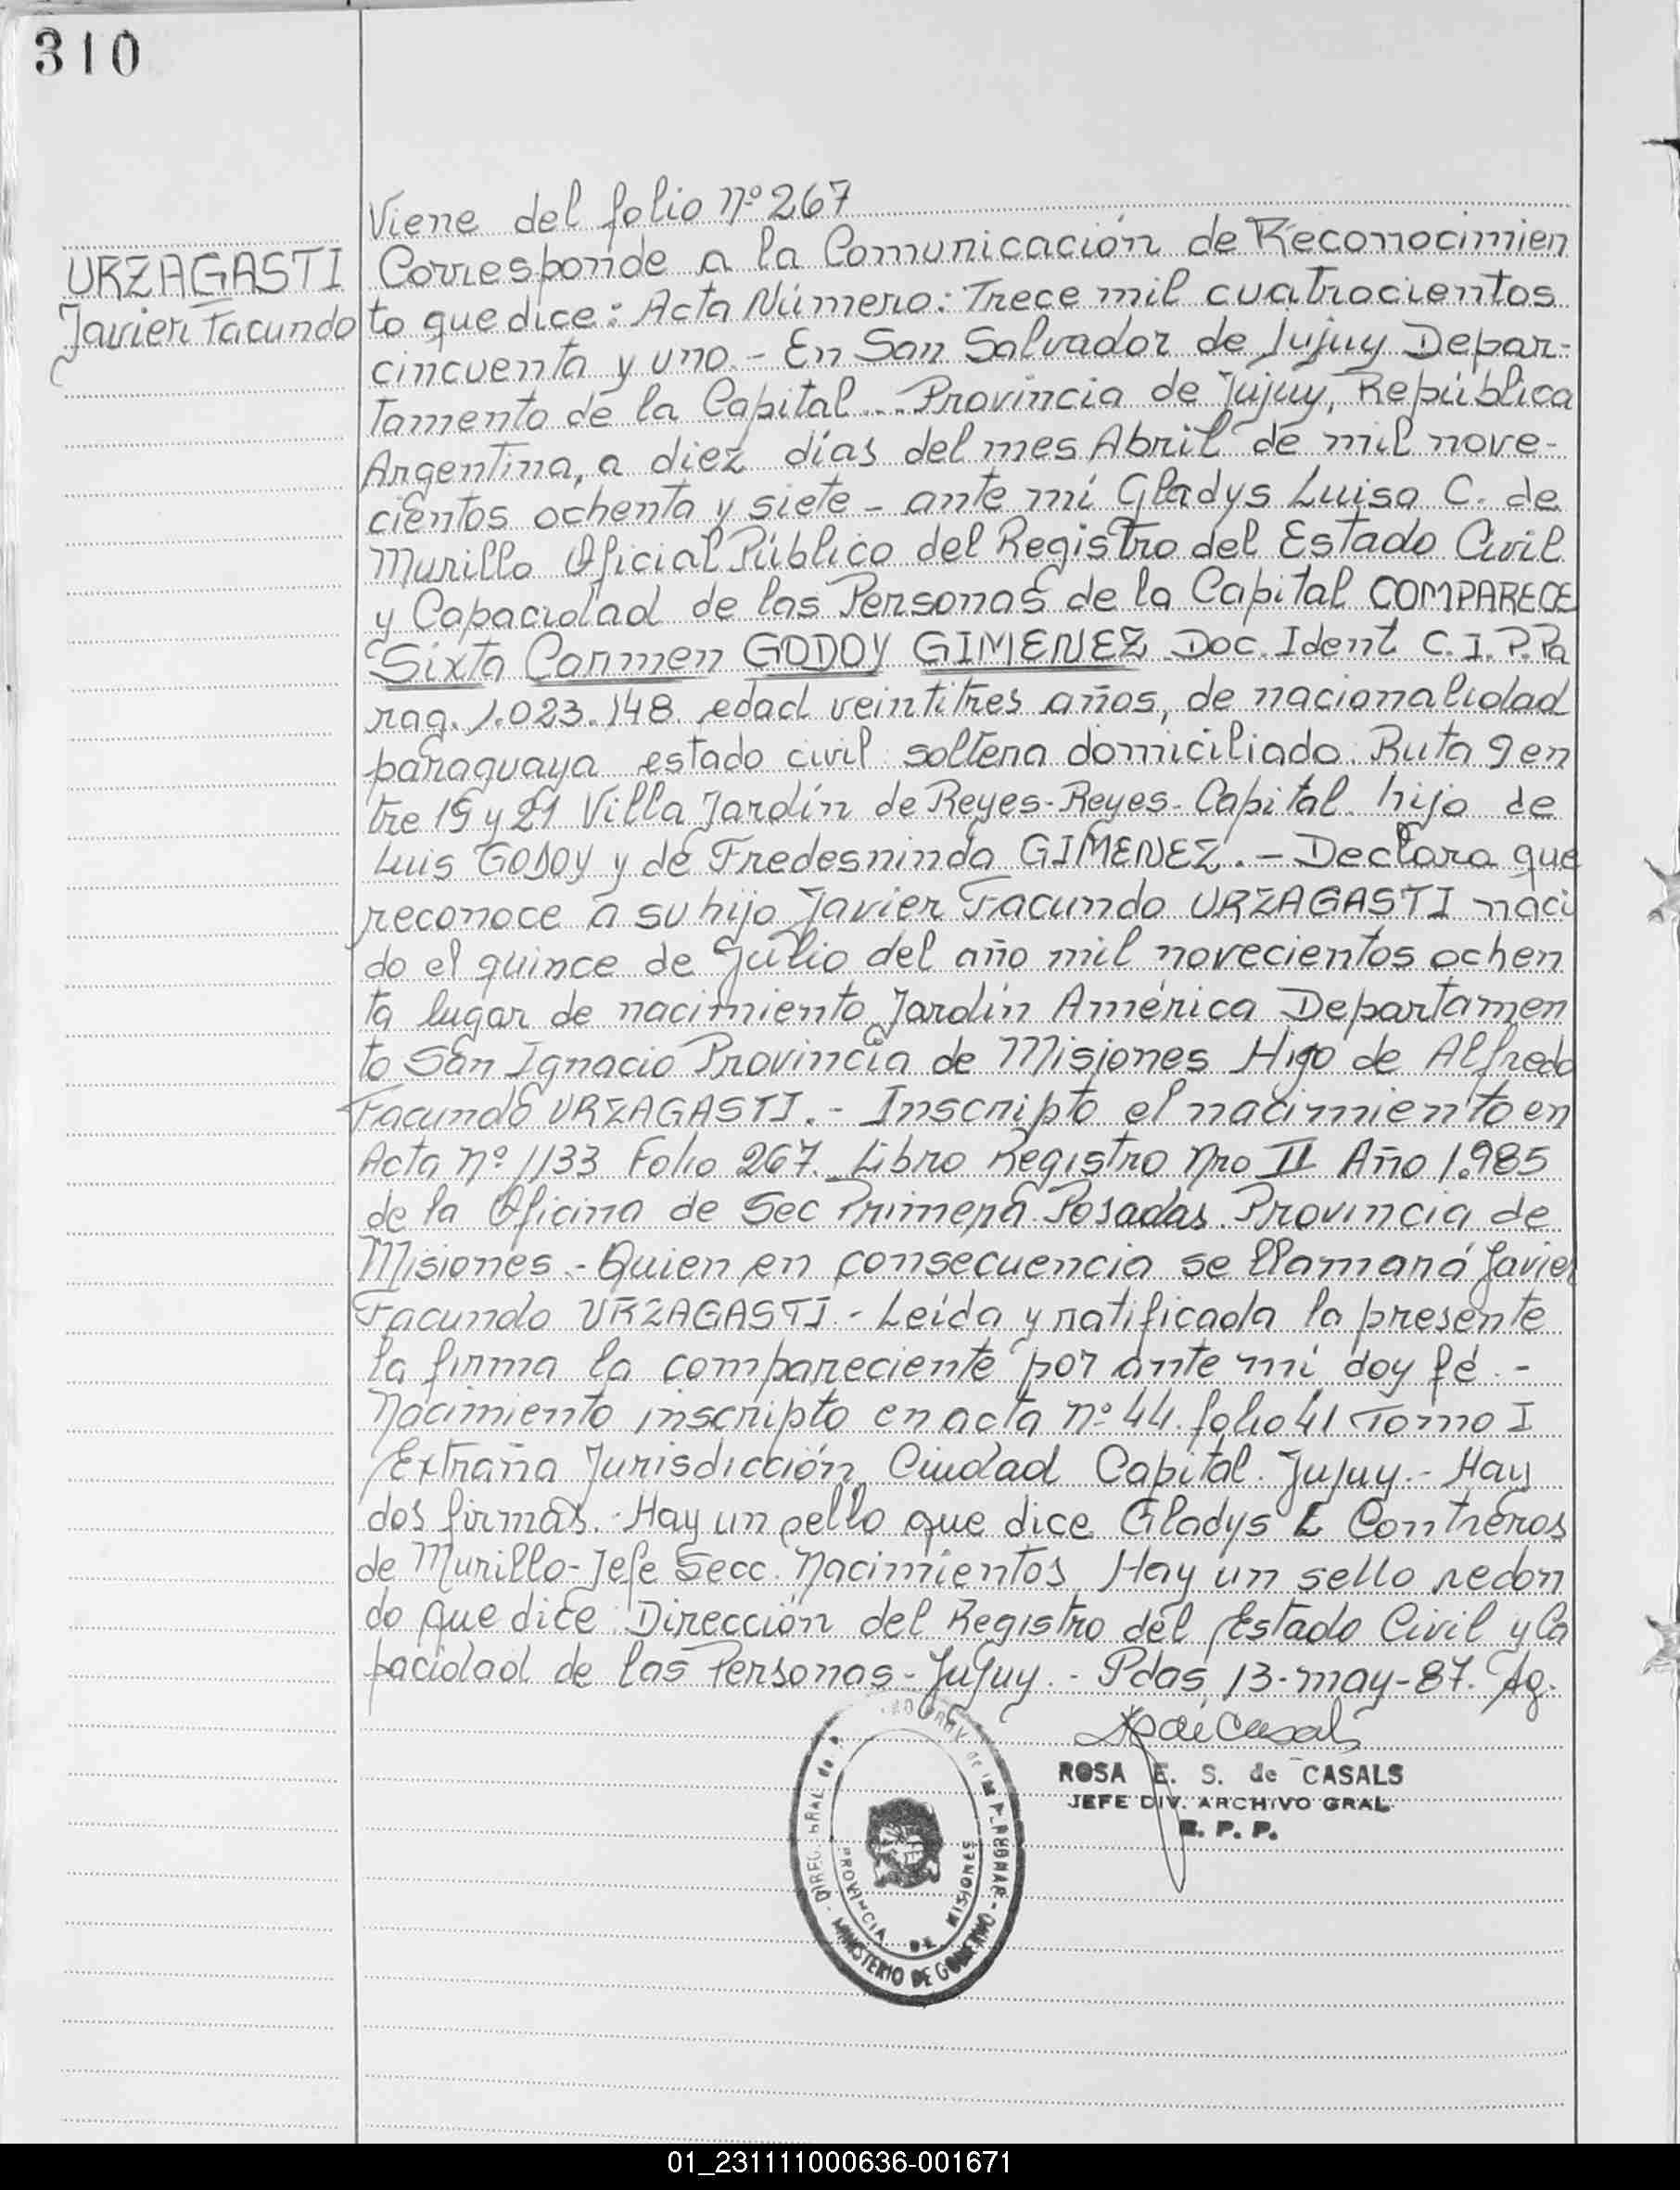 310
Viene del folio nº 267
URZAGASTI
Javier Facundo
Corresponde a la Comunicación de Reconocimien
to que dice: Acta Número: Trece mil cuatrocientos
cincuenta y uno.- En San Salvador de Jujuy Depar-
tamento de la Capital... Provincia de Jujuy, República
Argentina, a diez días del mes Abril de mil nove-
cientos ochenta y siete - ante mí Gladys Luisa C. de
Murillo Oficial Público del Registro del Estado Civil
y Capacidad de las Personas de la Capital COMPARECE
Sixta Carmen GODOY GIMENEZ Doc. Ident C.I.P.Pa
rag. 1.023.148 edad veintitres años, de nacionalidad
paraguaya estado civil soltera domiciliado. Ruta 9 en
tre 19 y 21 Villa Jardín de Reyes-Reyes-Capital. hijo de
Luis GODOY y de Fredesninda GIMENEZ.- Declara que
reconoce a su hijo Javier Facundo URZAGASTI naci
do el quince de Julio del año mil novecientos ochen
ta lugar de nacimiento Jardín América Departamen
to San Ignacio Provincia de Misiones Hijo de Alfredo
Facundo URZAGASTI.- Inscripto el nacimiento en
Acta nº 1133 Folio 267. Libro Registro Nro II Año 1.985
de la Oficina de Sec Primera Posadas Provincia de
Misiones.- Quien en consecuencia se llamará Javier
Facundo URZAGASTI.- Leída y ratificada la presente
la firma la compareciente por ante mí, doy fé.-
Nacimiento inscripto en acta nº 44 folio 41 Tomo I
Extraña Jurisdicción Ciudad Capital. Jujuy.- Hay
dos firmas. Hay un sello que dice Gladys L Contreras
de Murillo-Jefe Secc. Nacimientos Hay un sello redon
do que dice Dirección del Registro del Estado Civil y Ca
pacidad de las Personas - Jujuy.- Pdas, 13-may-87. Ag.
de Casals
ROSA E. S. de CASALS
JEFE DIV. ARCHIVO GRAL.
R. P. P.
PROVINCIA DE MISIONES
MINISTERIO DE GOBIERNO
01_231111000636-001671